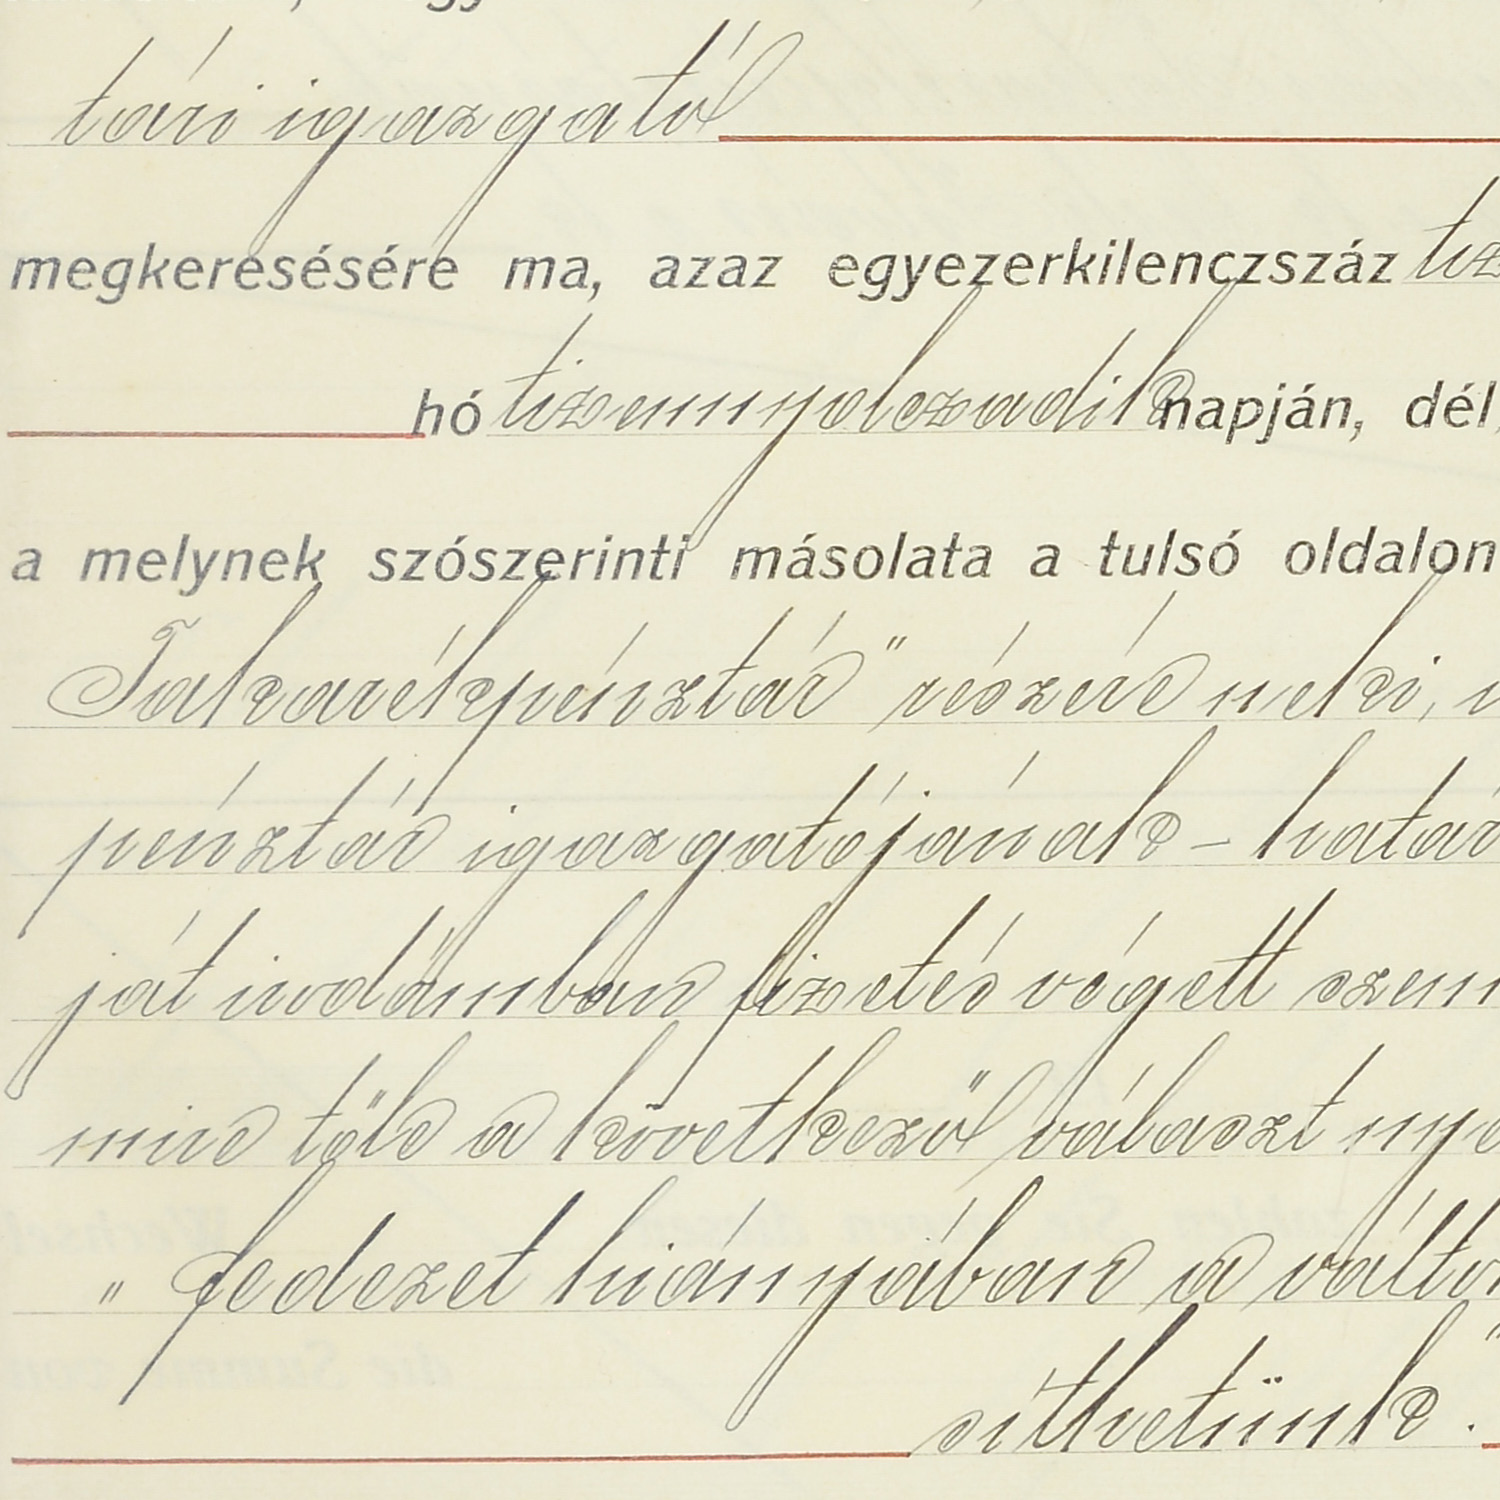 tári igazgató
megkeresésére ma, azaz egyezerkilenczszáz tiz
hó tizennyolczadik napján, dél,
a melynek szószerinti másolata a tulsó oldalon
Takarékpénztár" részére neki,
pénztár igazgatójának – határ
ját irodámban fizetés végett szem
mire tőle a következő választ nye
" fedezet hiányában a válto
sithetünk.